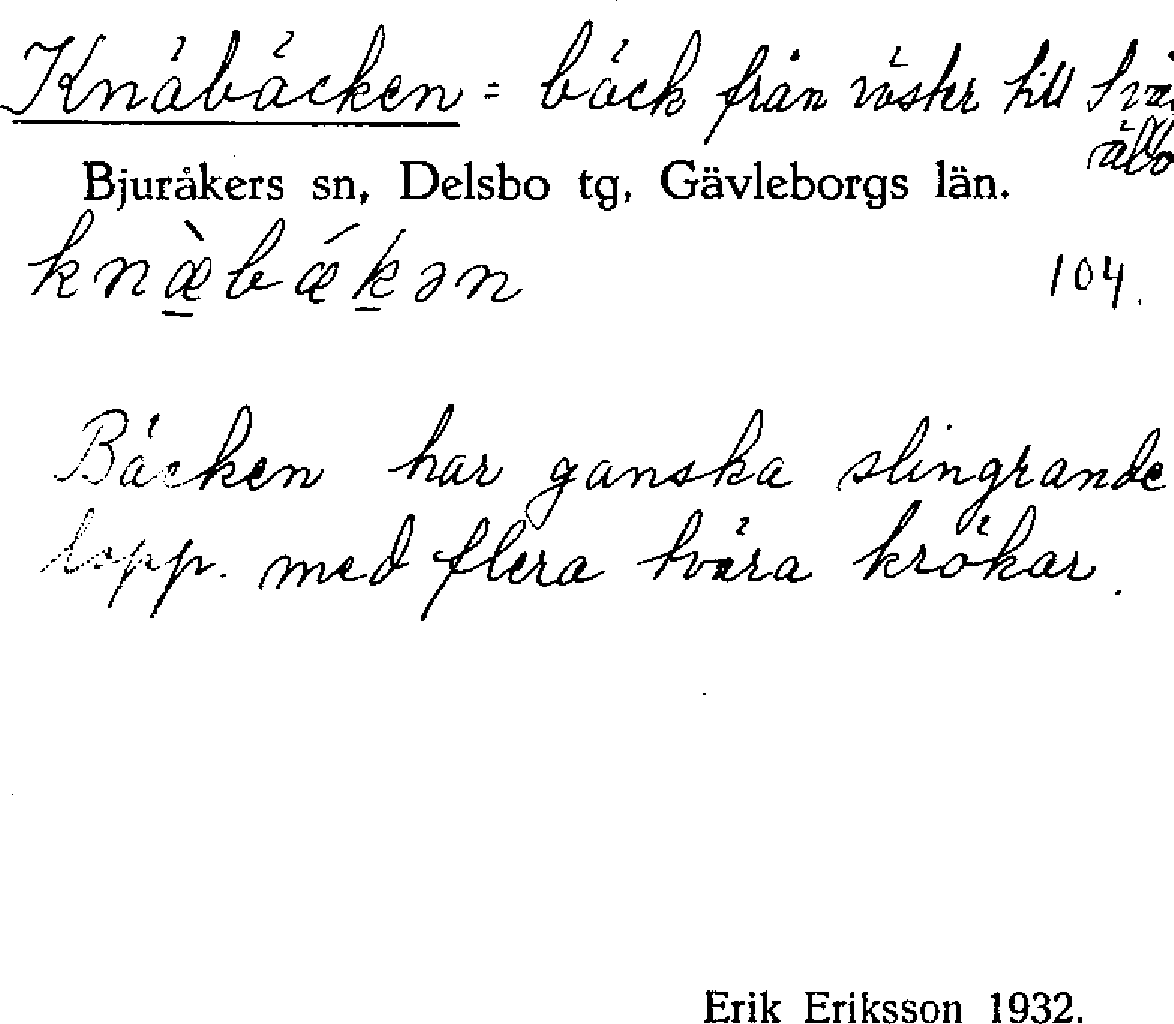 Knäbäcken = bäck från väster till
Bjuråkers sn, Delsbo tg, Gävleborgs län.
knæ̀bǽkən 104.
Bäcken har ganska slingrande
lopp. med flera tvära krökar.
Erik Eriksson 1932.